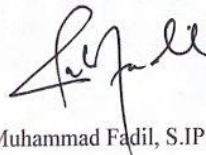 Muhammad Fadil, S.IP